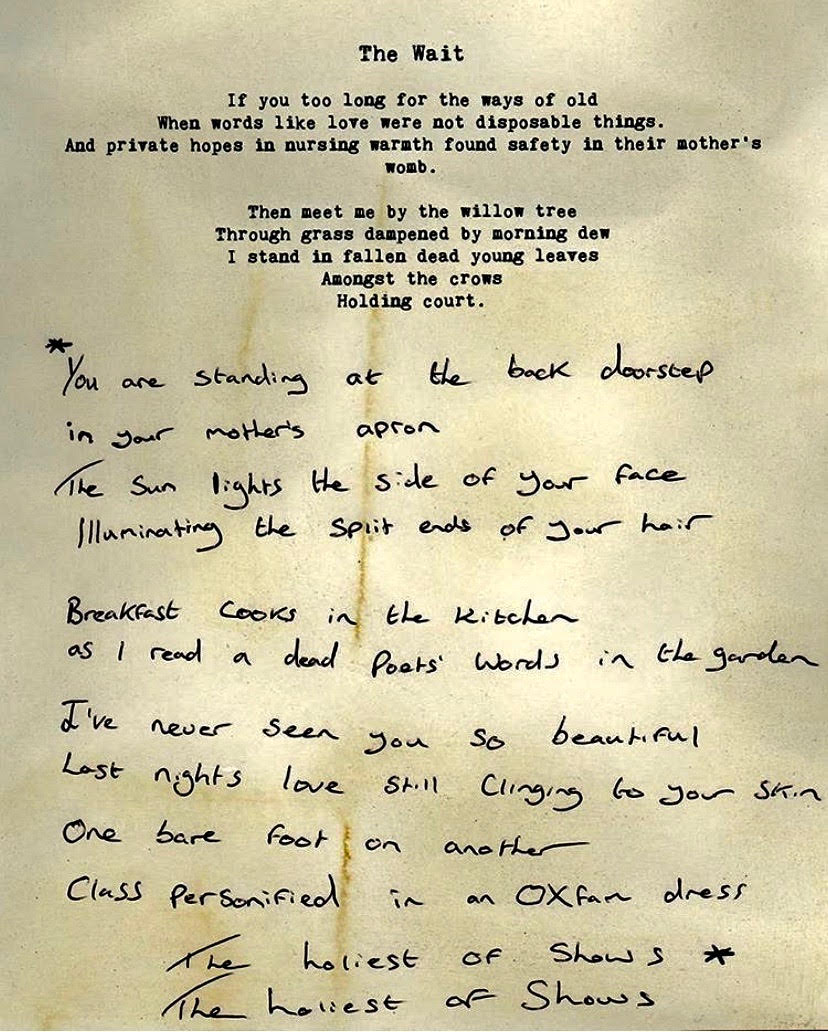 The Wait
If you too long for the ways of old
When words like love were not disposable things.
And private hopes in nursing warmth found safety in their mother's
womb.
Then meet me by the willow tree
Through grass dampened by morning dew
I stand in fallen dead young leaves
Amongst the crows
Holding court.
*
You are standing at the back doorstep
in your mother's apron
The Sun lights the side of your face
Illuminating the split ends of your hair
Breakfast Cooks in the kitchen
as I read a dead Poets' Words in the garden
I've never seen you so beautiful
Last nights love still Clinging to your skin
One bare foot on another
Class Personified in an OXfam dress
The holiest of Shows *
The holiest of Shows